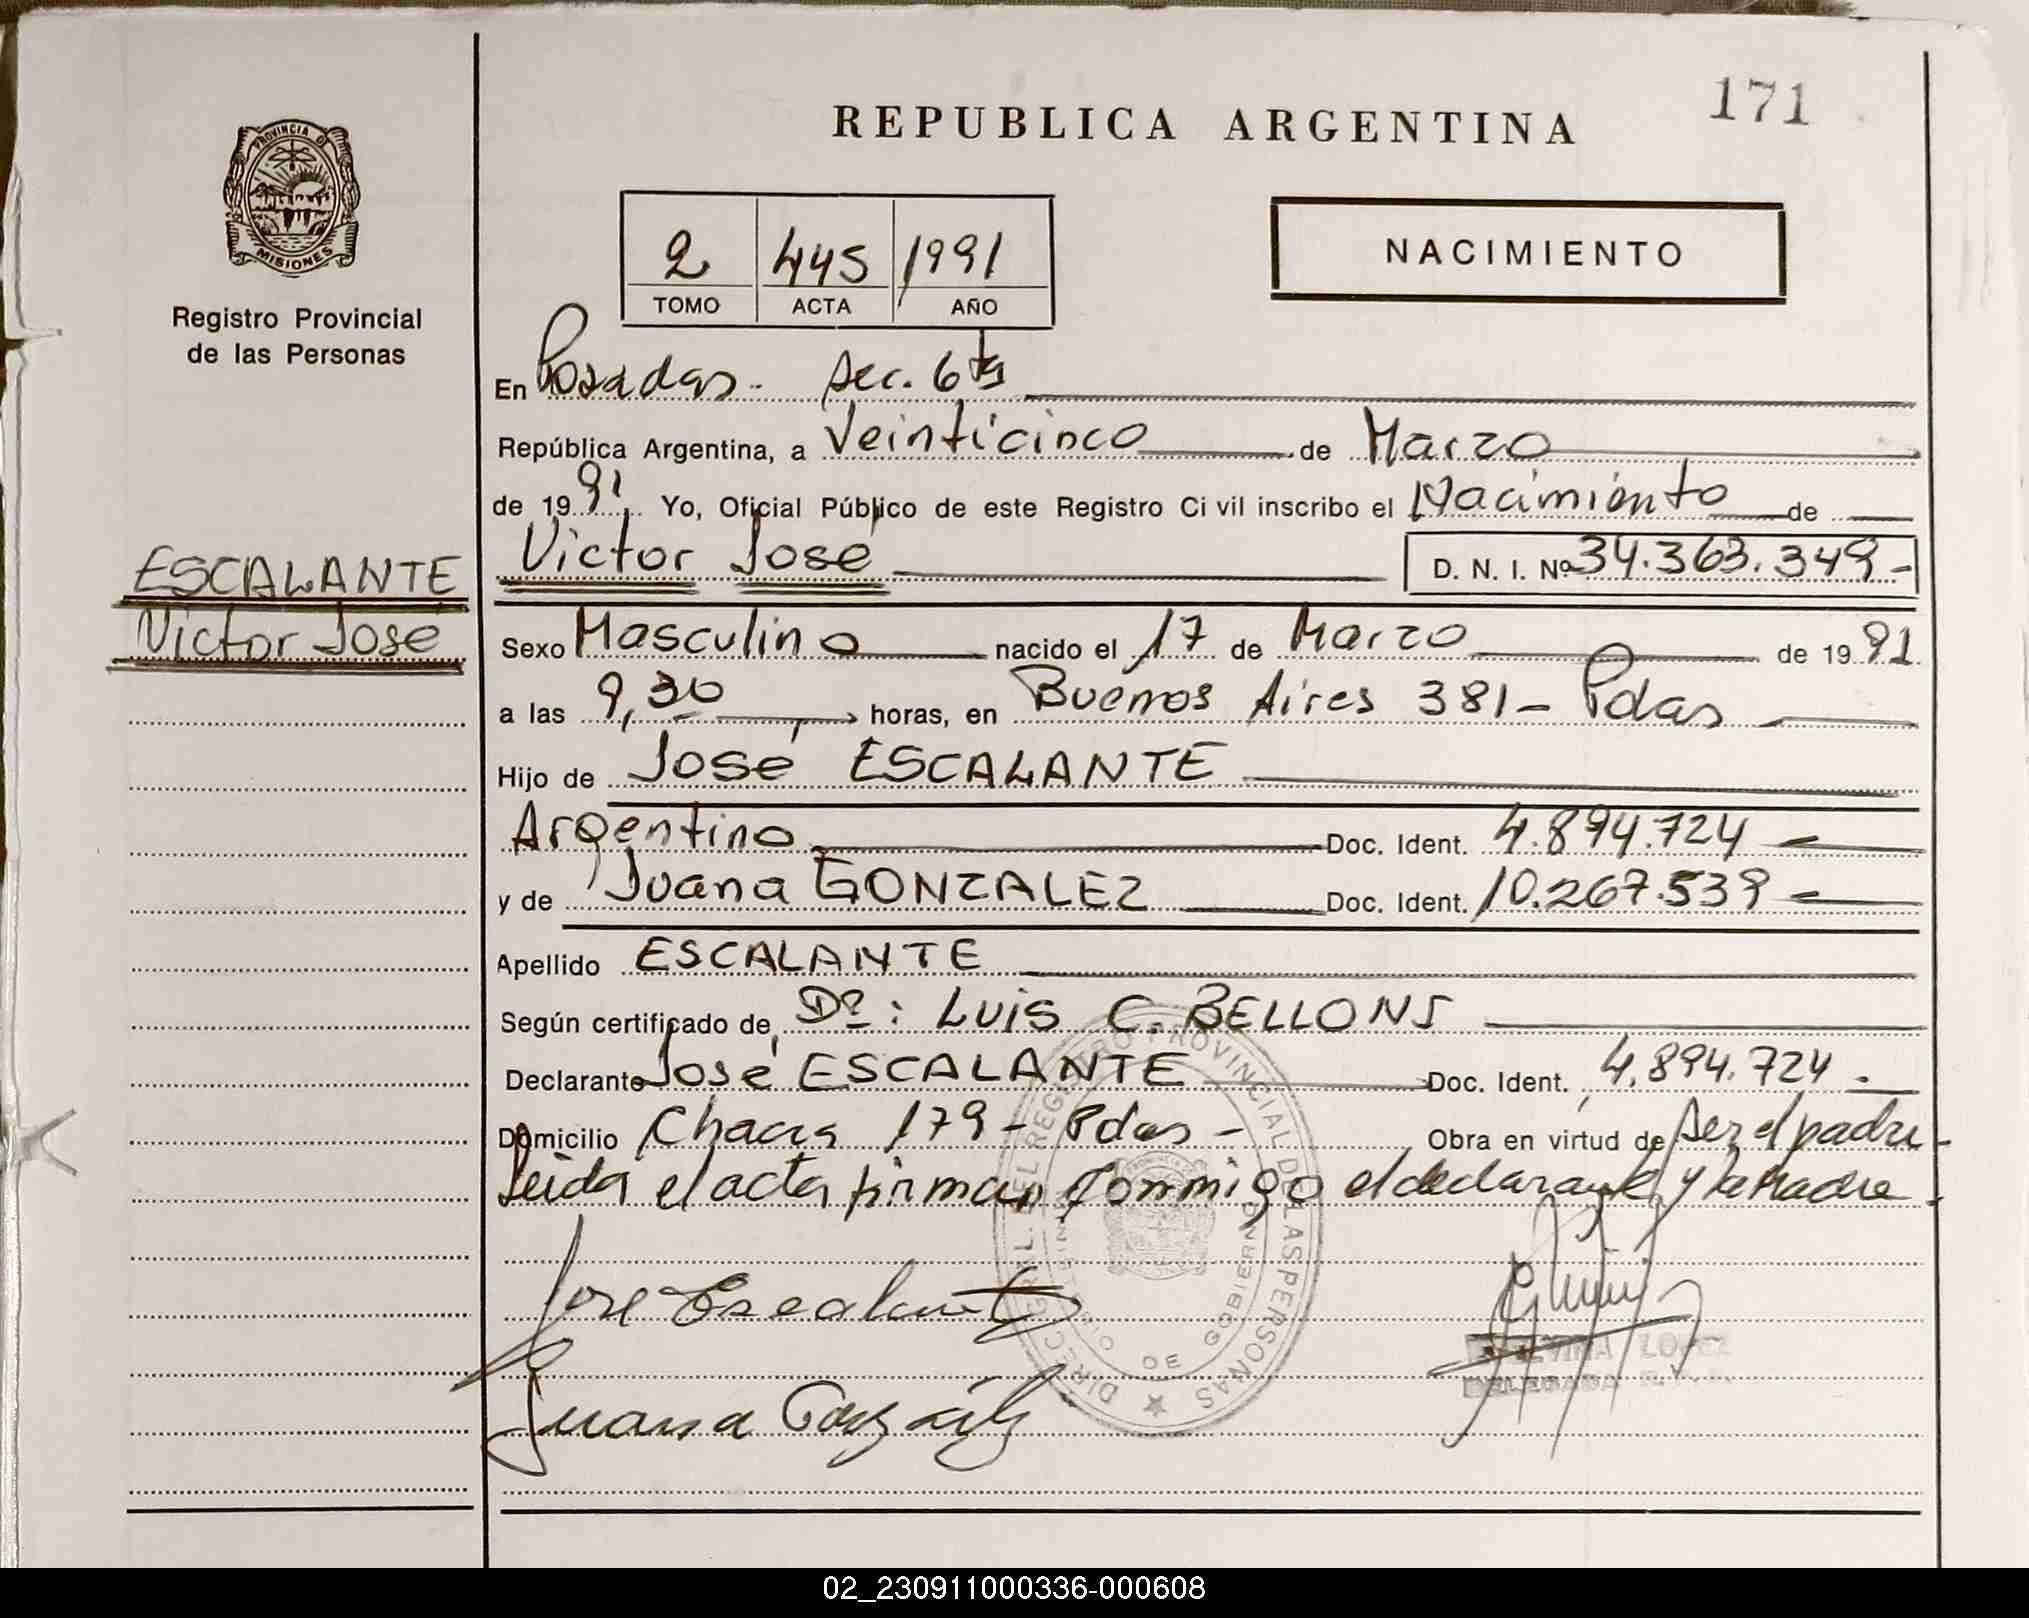 171
REPUBLICA ARGENTINA
PROVINCIA DE
MISIONES
Registro Provincial
de las Personas
2 445 1991
TOMO ACTA AÑO
NACIMIENTO
En Posadas - Sec. 6ta
República Argentina, a Veinticinco de Marzo
de 1991 Yo, Oficial Público de este Registro Civil inscribo el Nacimiento de
Victor José D. N. I. Nº 34.363.349-
ESCALANTE
Victor José
Sexo Masculino nacido el 17 de Marzo de 1991
a las 9,30 horas, en Buenos Aires 381 - Pdas
Hijo de José ESCALANTE
Argentino Doc. Ident. 4.894.724
y de Juana GONZALEZ Doc. Ident. 10.267.539
Apellido ESCALANTE
Según certificado de Dr: LUIS C. BELLONS
Declarante José ESCALANTE Doc. Ident. 4.894.724.
Domicilio Chacra 179 - Pdas - Obra en virtud de Ser el padre -
Leida el acta firman conmigo el declarante y la Madre -
Jose Escalante
Juana González
DIREC. GRAL. DEL REGISTRO PROVINCIAL DE LAS PERSONAS
MINISTERIO DE GOBIERNO
LOPEZ
DELEGADA
02_230911000336-000608